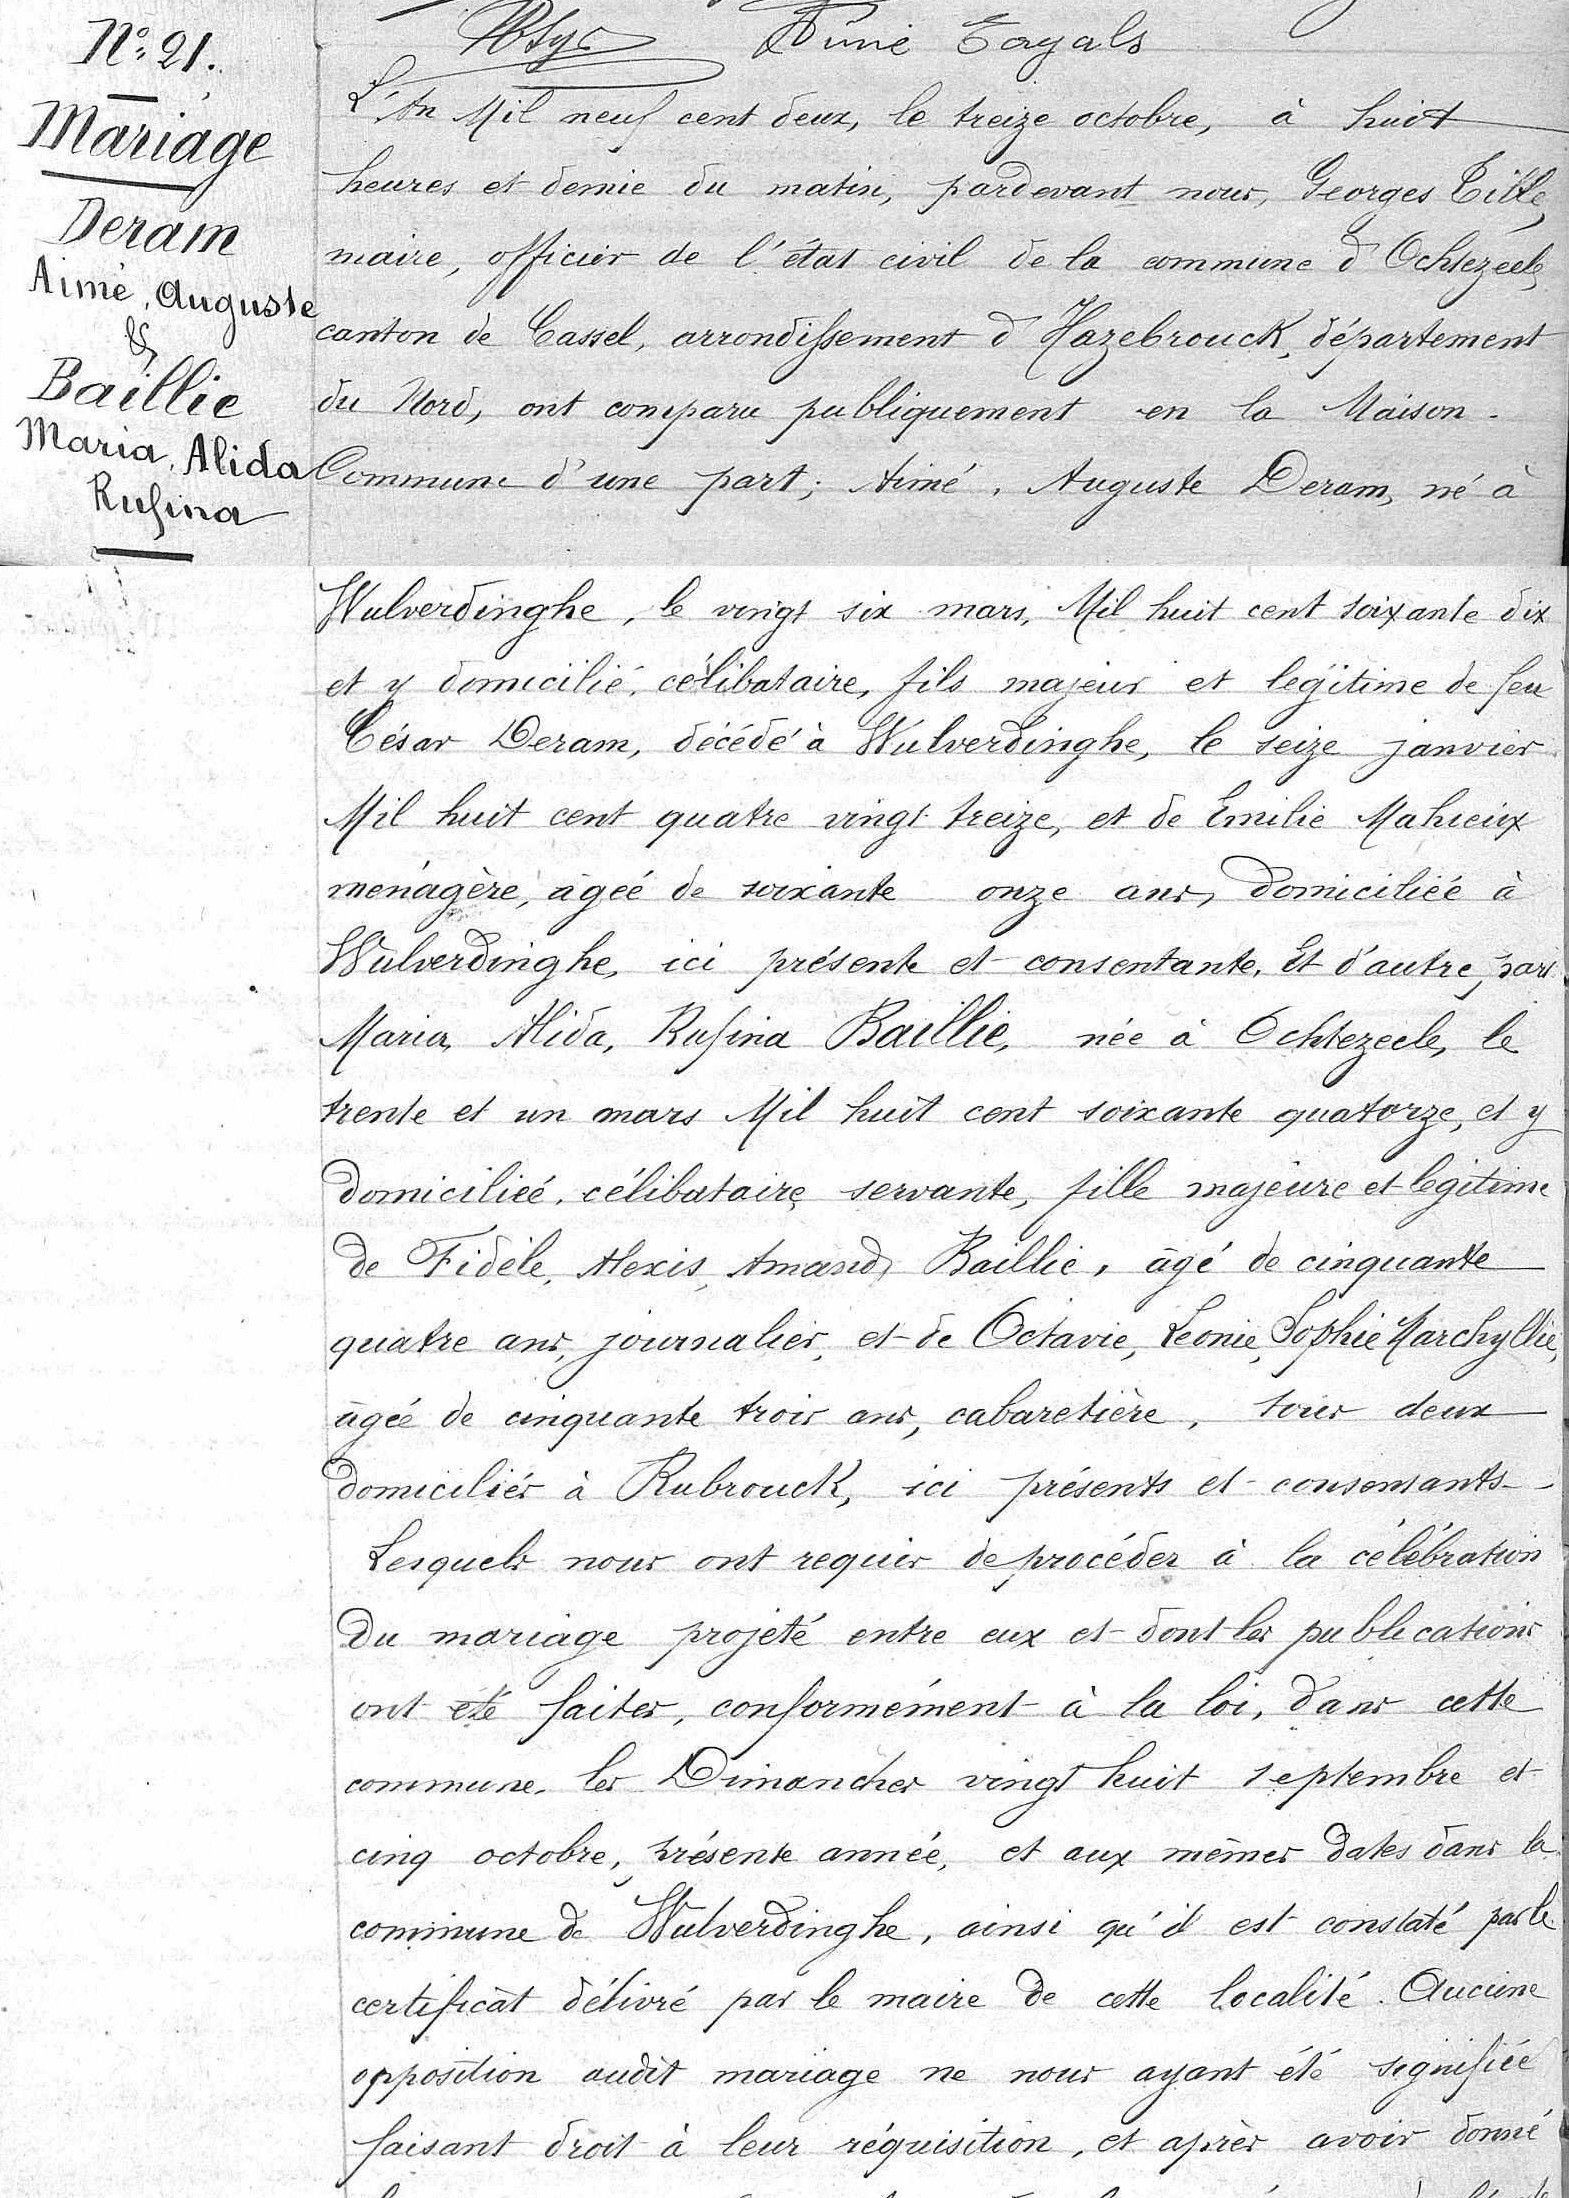 N° 21.
Mariage
Deram
Aimé, Auguste
&
Baillie
Maria, Alida
Rufina
L'An Mil neuf cent deux, le treize octobre, à huit
heures et demie du matin, pardevant nous, Georges
maire, officier de l'état civil de la commune d'Ochtezeele,
canton de Cassel, arrondissement d'Hazebrouck, département
du Nord, ont comparu publiquement en la Maison
Commune d'une part; Aimé, Auguste Deram, né à
Wulverdinghe, le vingt six mars, Mil huit cent soixante dix
et y domicilié, célibataire, fils majeur et légitime de feu
César Deram, décédé à Wulverdinghe, le seize janvier
Mil huit cent quatre vingt treize, et de Emilie Mahieux
ménagère, âgée de soixante onze ans, domiciliée à
Wulverdinghe, ici présente et consentante, Et d'autre part
Maria, Alida, Rufina Baillie, née à Ochtezeele, le
trente et un mars Mil huit cent soixante quatorze, et y
domiciliée, célibataire, servante, fille majeure et légitime
de Fidèle, Alexis, Amand, Baillie, âgé de cinquante
quatre ans, journalier, et de Octavie, Léonie, Sophie Marchyllie,
âgée de cinquante trois ans, cabaretière, tous deux
domiciliés à Rubrouck, ici présents et consentants -
Lesquels nous ont requis de procéder à la célébration
du mariage projeté entre eux et dont les publications
ont été faites, conformément à la loi, dans cette
commune, les Dimanches vingt huit septembre et
cinq octobre, présente année, et aux mêmes dates dans la
commune de Wulverdinghe, ainsi qu'il est constaté par le
certificat délivré par le maire de cette localité. Aucune
opposition audit mariage ne nous ayant été signifiée
faisant droit à leur réquisition, et après avoir donné